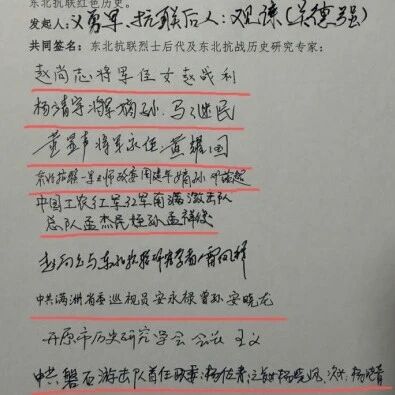 东北抗联红色历史。
发起人：义勇军、抗联后人：观谏（关德强）
共同签名：东北抗联烈士后代及东北抗战历史研究专家：
赵尚志将军侄女赵战利
杨靖宇将军嫡孙 马继民
黄显声将军永侄 黄耀国
东北抗联一军一师政委周建华嫡孙
中国工农红军32军南满游击队
总队孟杰民侄孙孟祥
赵尚志与东北抗联研究者
中共满洲省委巡视员安永禄曾孙安晓龙
开原市历史研究学会 会长 王义
中共磐石游击队首任政委 杨佐青 之女 杨晓 次 杨晓青